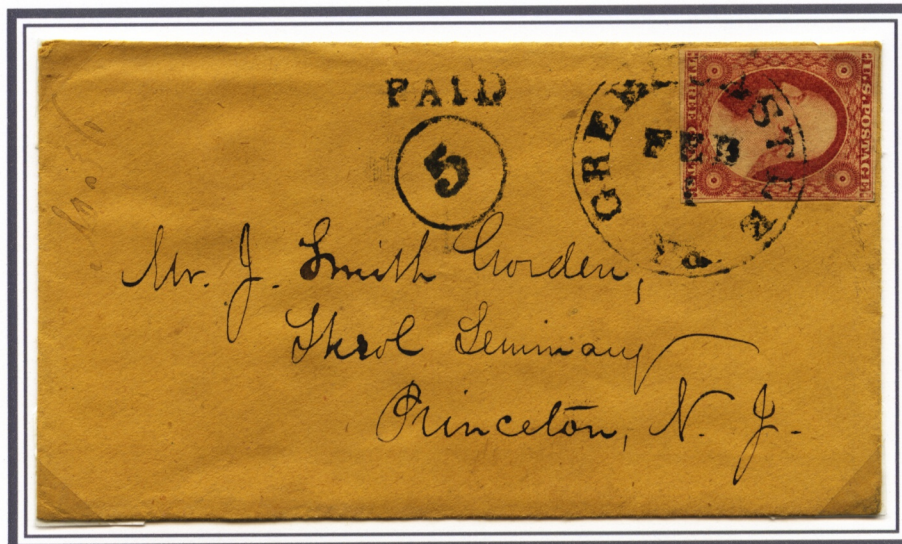 PAID
5
GREENCASTLE PA
FEB
U.S. POSTAGE.
THREE CENTS
Mr. J. Smith Gorden,
Theol Seminary
Princeton, N. J.